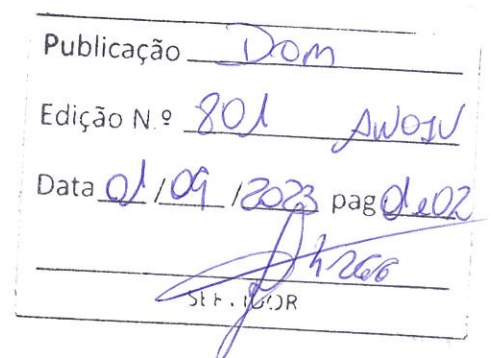 Publicação DOM
Edição N.º 801 ANO IV
Data 01/09/2023 pag 01 e 02
SERVIDOR